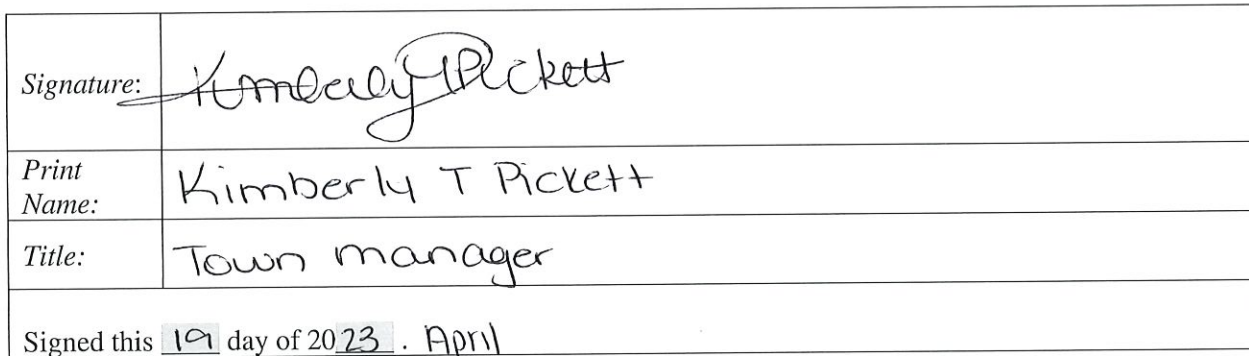 Signature: Kimberly T Pickett
Print Name: Kimberly T Pickett
Title: Town manager
Signed this 19 day of 2023 . April